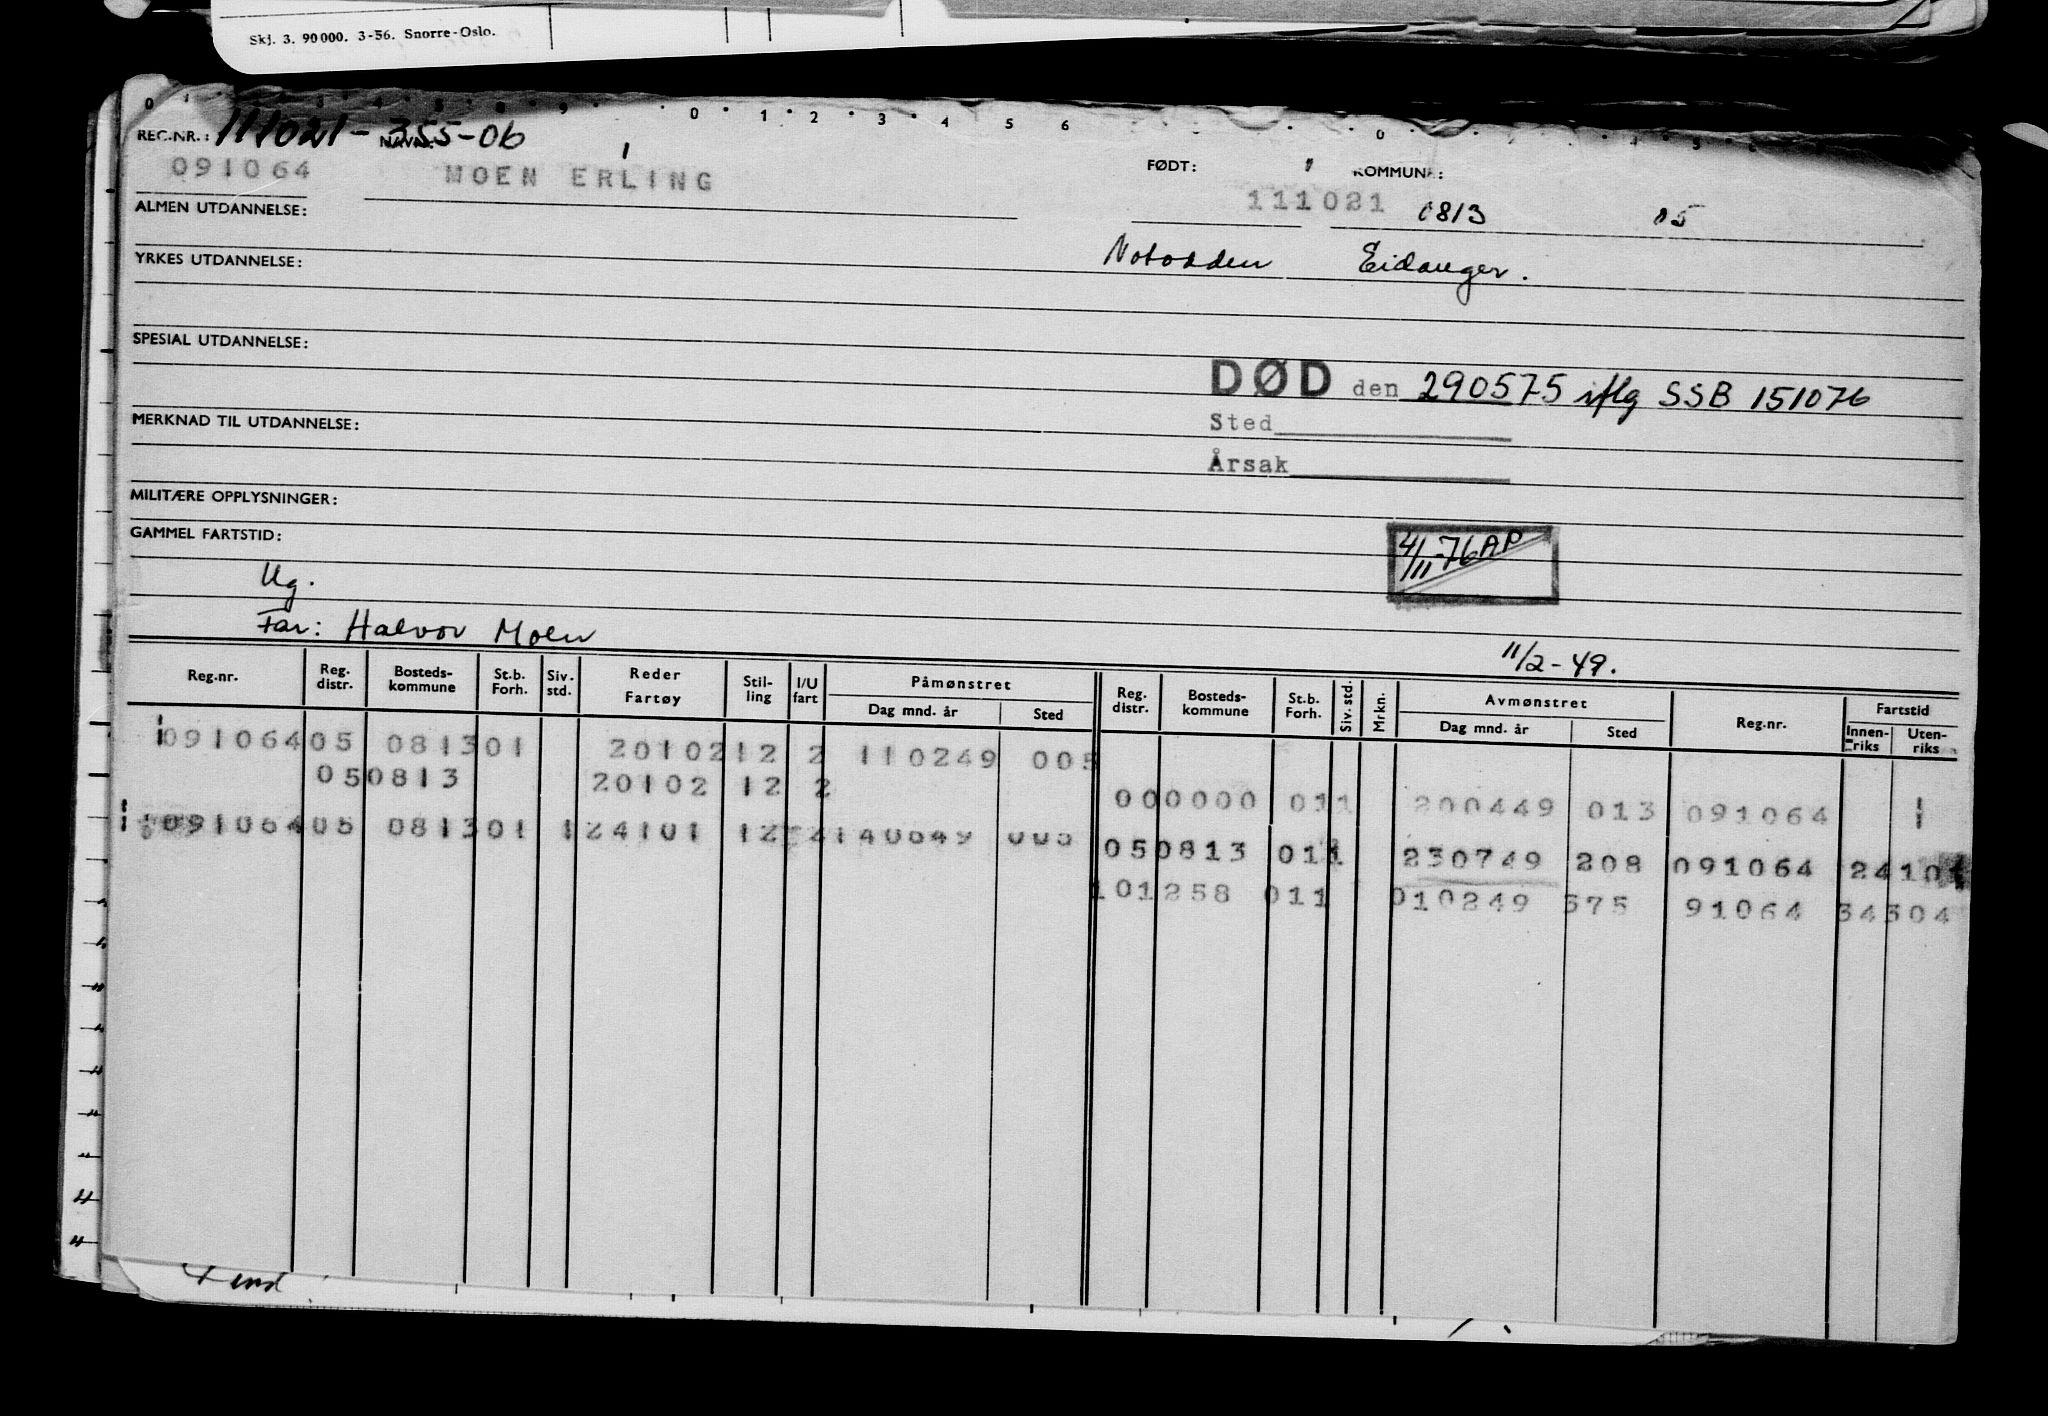 Skj. 3. 90000. 3-56. Snorre-Oslo.
REG.NR.: 111021-355-06
091064 MOEN ERLING
FØDT: KOMMUNE:
111021 0813 05
ALMEN UTDANNELSE:
Notodden Eidanger.
YRKES UTDANNELSE:
SPESIAL UTDANNELSE:
DØD den 290575 iflg SSB 151076
Sted
MERKNAD TIL UTDANNELSE:
Årsak
MILITÆRE OPPLYSNINGER:
GAMMEL FARTSTID:
4/11-76 AP
Ug.
Far: Halvor Moen
11/2-49.
Reg.nr. Reg. distr. Bosteds-kommune St.b. Forh. Siv. std. Reder Fartøy Stil-ling I/U fart Påmønstret Dag mnd. år Sted Reg. distr. Bosteds-kommune St.b. Forh. Siv. std. Mrkn. Avmønstret Dag mnd. år Sted Reg.nr. Fartstid Innen-riks Uten-riks
091064 05 0813 01 20102 12 2 110249 005
05 0813 20102 12 2
000000 011 200449 013 091064 1
091064 05 0813 01 1 24101 12 2 140649 005
050813 011 230749 208 091064 2410
101258 011 010249 375 91064 34304